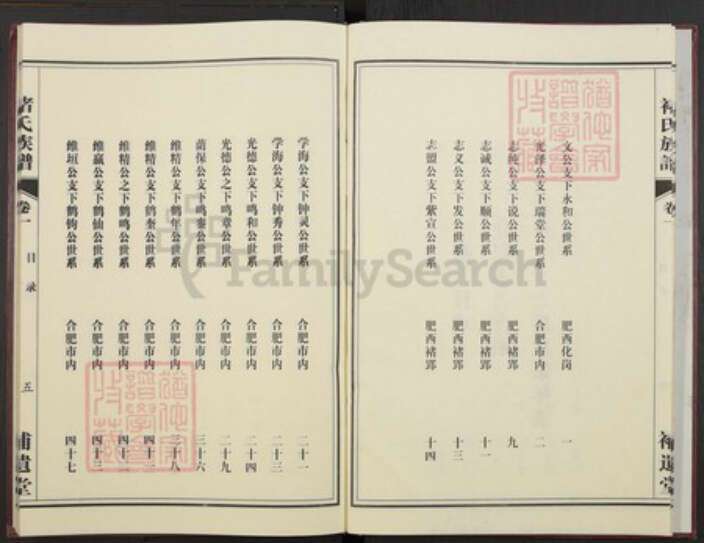 褚氏族谱
卷一
补遗堂
文公支下永和公世系 肥西化岗 一
光泽公支下瑞堂公世系 合肥市内 二
志纯公支下说公世系 肥西褚郢 九
志诚公支下顺公世系 肥西褚郢 十一
志义公支下发公世系 肥西褚郢 十三
志盟公支下紫宣公世系 肥西褚郢 十四
学海公支下钟灵公世系 合肥市内 二十一
学海公支下钟秀公世系 合肥市内 二十三
光德公支下鸣和公世系 合肥市内 二十四
光德公之下鸣章公世系 合肥市内 二十九
荫保公支下鸣銮公世系 合肥市内 三十六
维精公支下鹤年公世系 合肥市内 三十八
维精公支下鹤奎公世系 合肥市内 四十一
维精公之下鹤鸣公世系 合肥市内 四十二
维嬴公支下鹤仙公世系 合肥市内 四十三
维垣公支下鹤钧公世系 合肥市内 四十七
褚氏族谱
卷一
目录
五
补遗堂
FamilySearch